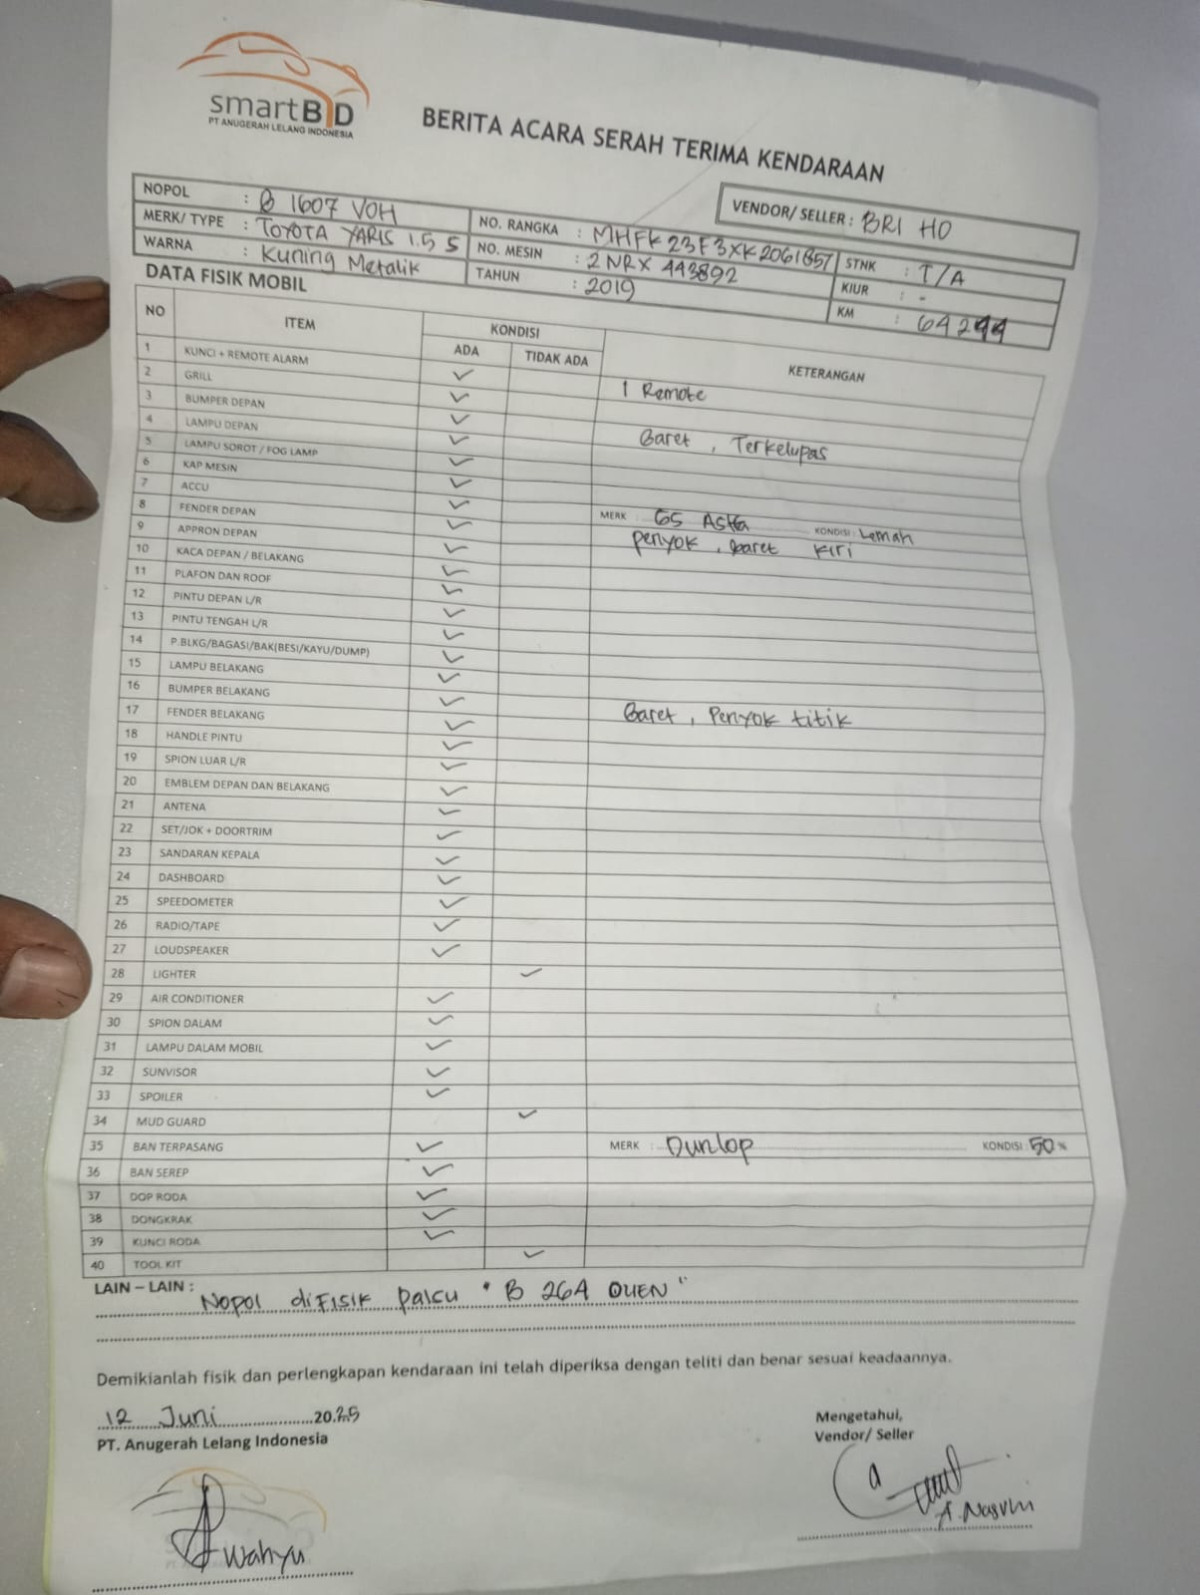 smartBID
PT ANUGERAH LELANG INDONESIA
BERITA ACARA SERAH TERIMA KENDARAAN
VENDOR/ SELLER : BRI HO
NOPOL : B 1607 VOH
MERK/ TYPE : TOYOTA YARIS 1.5 S
WARNA : Kuning Metalik
NO. RANGKA : MHFK23F3XK2061857
NO. MESIN : 2NRX 443892
TAHUN : 2019
STNK : T/A
KIUR : -
KM : 64244
DATA FISIK MOBIL
NO ITEM KONDISI KETERANGAN
ADA TIDAK ADA
1 KUNCI + REMOTE ALARM ✓ 1 Remote
2 GRILL ✓
3 BUMPER DEPAN ✓ Baret , Terkelupas
4 LAMPU DEPAN ✓
5 LAMPU SOROT / FOG LAMP ✓
6 KAP MESIN ✓
7 ACCU ✓ MERK GS Astra KONDISI : Lemah
8 FENDER DEPAN ✓ penyok , baret kiri
9 APPRON DEPAN ✓
10 KACA DEPAN / BELAKANG ✓
11 PLAFON DAN ROOF ✓
12 PINTU DEPAN L/R ✓
13 PINTU TENGAH L/R ✓
14 P.BLKG/BAGASI/BAK(BESI/KAYU/DUMP) ✓
15 LAMPU BELAKANG ✓
16 BUMPER BELAKANG ✓ Baret , Penyok titik
17 FENDER BELAKANG ✓
18 HANDLE PINTU ✓
19 SPION LUAR L/R ✓
20 EMBLEM DEPAN DAN BELAKANG ✓
21 ANTENA ✓
22 SET/JOK + DOORTRIM ✓
23 SANDARAN KEPALA ✓
24 DASHBOARD ✓
25 SPEEDOMETER ✓
26 RADIO/TAPE ✓
27 LOUDSPEAKER ✓
28 LIGHTER ✓
29 AIR CONDITIONER ✓
30 SPION DALAM ✓
31 LAMPU DALAM MOBIL ✓
32 SUNVISOR ✓
33 SPOILER ✓
34 MUD GUARD ✓
35 BAN TERPASANG ✓ MERK : Dunlop KONDISI : 50 %
36 BAN SEREP ✓
37 DOP RODA ✓
38 DONGKRAK ✓
39 KUNCI RODA ✓
40 TOOL KIT ✓
LAIN - LAIN : Nopol diFisik palsu " B 264 QUEN "
Demikianlah fisik dan perlengkapan kendaraan ini telah diperiksa dengan teliti dan benar sesuai keadaannya.
12 Juni 2025
PT. Anugerah Lelang Indonesia
Mengetahui,
Vendor/ Seller
Wahyu